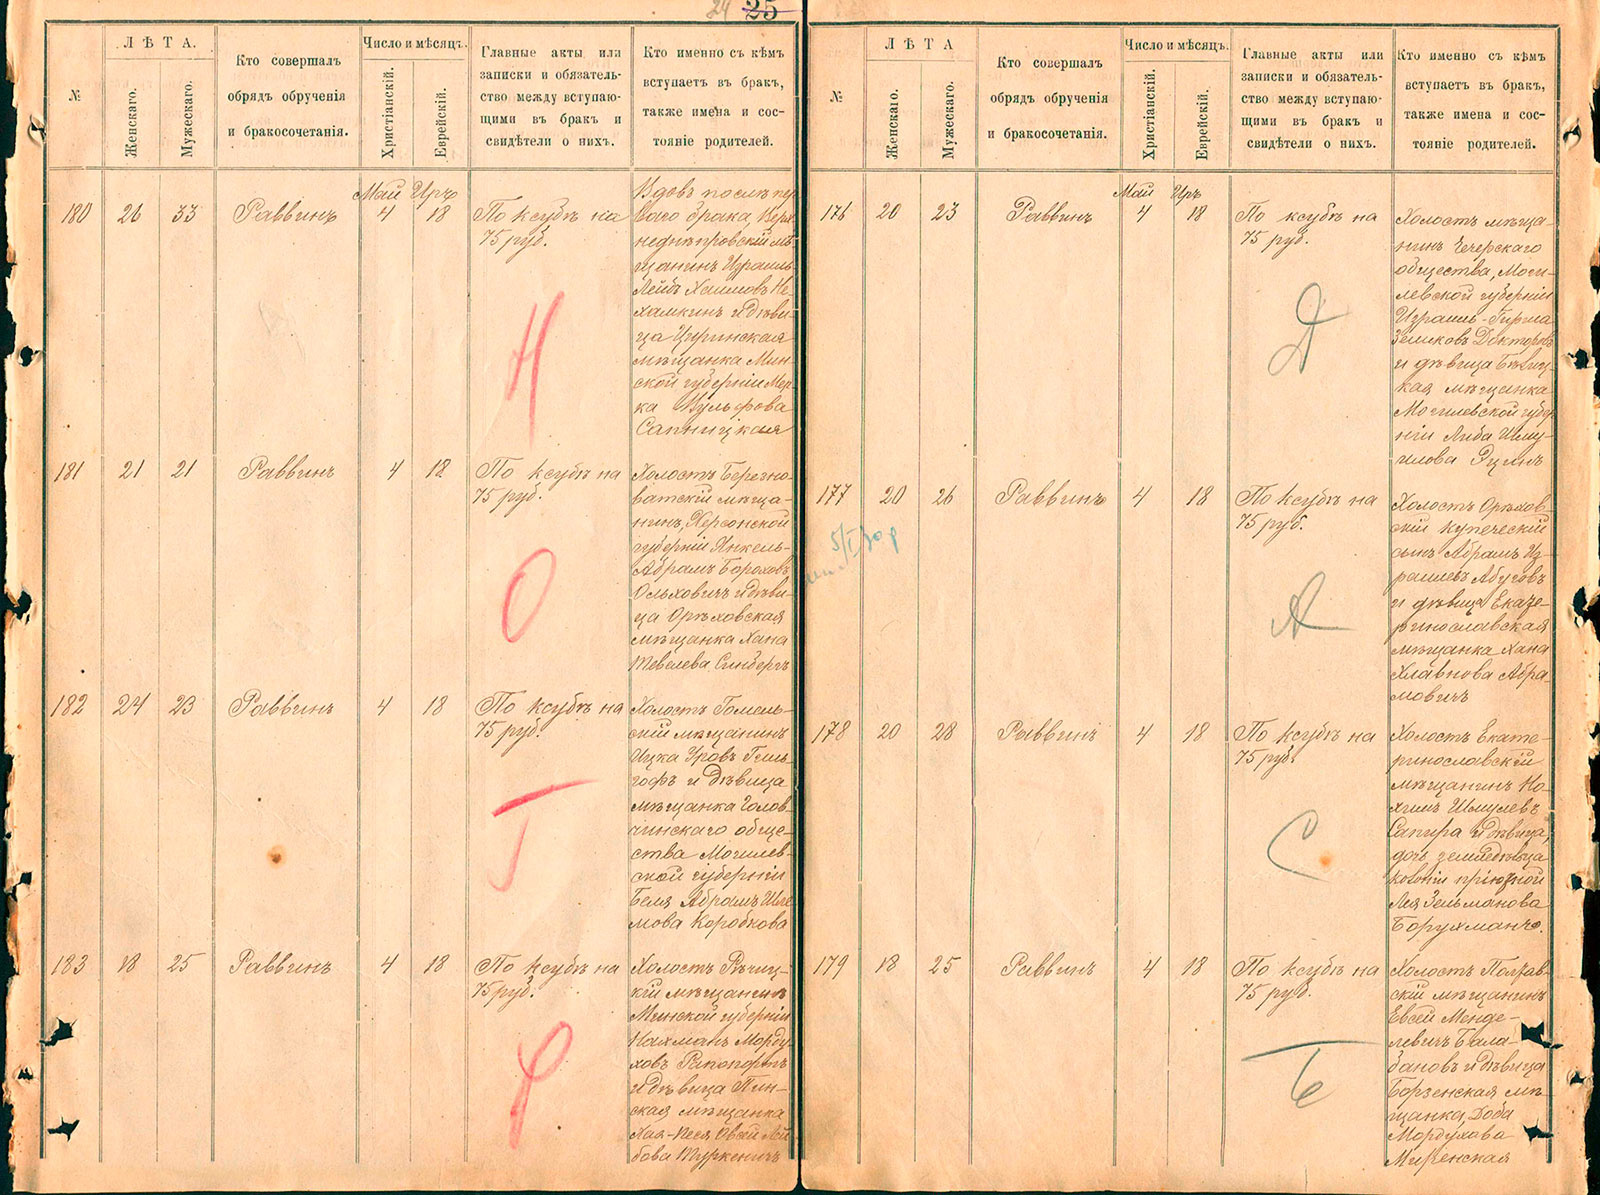 24 25
№
ЛѢТА.
Женскаго.
Мужескаго.
Кто совершалъ
обрядъ обрученія
и бракосочетанія.
Число и мѣсяцъ.
Христіанскій.
Еврейскій.
Главные акты или
записки и обязатель-
ство между вступаю-
щими въ бракъ и
свидѣтели о нихъ.
Кто именно съ кѣмъ
вступаетъ въ бракъ,
также имена и сос-
тояніе родителей.
Май Иръ
180 26 33 Раввинъ 4 18
По ксубѣ на
75 руб.
Вдовъ послѣ пер
ваго брака, Верх
неднѣпровскій мѣ
щанинъ Израиль
Лейбъ Хаимовъ Не
хамкинъ и дѣви
ца
мѣщанка Мин
ской губерніи Мер
ка Вульфова
Сапницкая
181 21 21 Раввинъ 4 18
По ксубѣ на
75 руб.
Холостъ Березно-
ватскій мѣща-
нинъ, Херсонской
губерніи Янкель-
Абрамъ Бороховъ
Ольховичъ и дѣви-
ца Орѣховская
мѣщанка Хана
Тевелева
182 24 23 Раввинъ 4 18
По ксубѣ на
75 руб.
Холостъ Гомель-
скій мѣщанинъ
Ицка
и дѣвица
мѣщанка Голов
чинскаго обще-
ства Могилев-
ской губерніи
Бейля Абрамъ Шле
мова Коробкова
183 18 25 Раввинъ 4 18
По ксубѣ на
75 руб.
Холостъ Рѣчиц-
кій мѣщанинъ
Минской губерніи
Нахманъ Морду-
ховъ Рапопортъ
и дѣвица Пин-
ская мѣщанка
Хая-Песя Овсей Лей
бова Туркеничъ
Н
О
Т
Ф
№
ЛѢТА
Женскаго.
Мужескаго.
Кто совершалъ
обрядъ обрученія
и бракосочетанія.
Число и мѣсяцъ.
Христіанскій.
Еврейскій.
Главные акты или
записки и обязатель-
ство между вступаю-
щими въ бракъ и
свидѣтели о нихъ.
Кто именно съ кѣмъ
вступаетъ въ бракъ,
также имена и сос-
тояніе родителей.
Май Иръ
176 20 23 Раввинъ 4 18
По ксубѣ на
75 руб.
Холостъ мѣща-
нинъ Чечерскаго
общества, Моги-
левской губерніи
Израиль-Гирша
Зеликовъ Докторовъ
и дѣвица Бѣлиц
кая мѣщанка
Могилевской губер
ніи Либа Шму-
илова
177 20 26 Раввинъ 4 18
По ксубѣ на
75 руб.
Холостъ Орѣхов-
скій купеческій
сынъ Абрамъ Из-
раилевъ Абуговъ
и дѣвица Екате-
ринославская
мѣщанка Хана
Хлавнова Абра-
мовичъ
178 20 28 Раввинъ 4 18
По ксубѣ на
75 руб.
Холостъ Екате-
ринославскій
мѣщанинъ Но-
химъ Шмулевъ
Сапира и дѣвица,
дочь земледѣльца
колоніи пріютной
Лея Зельманова
Борухманъ.
179 18 25 Раввинъ 4 18
По ксубѣ на
75 руб.
Холостъ Полтав-
скій мѣщанинъ
Евсей Менде-
левичъ Бала-
бановъ и дѣвица
Борзенская мѣ-
щанка, Доба
Мордухова
Миренская
Д
А
С
Ъ